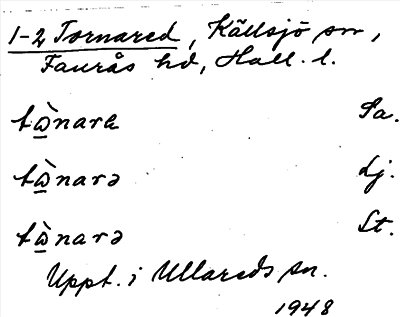 1-2 Tornared, Källsjö sn,
Faurås hd, Hall. l.
tὼ̲nara Sa.
tὼ̲narə Lj.
tὼ̲narə St.
Uppt. i Ullareds sn.
1948